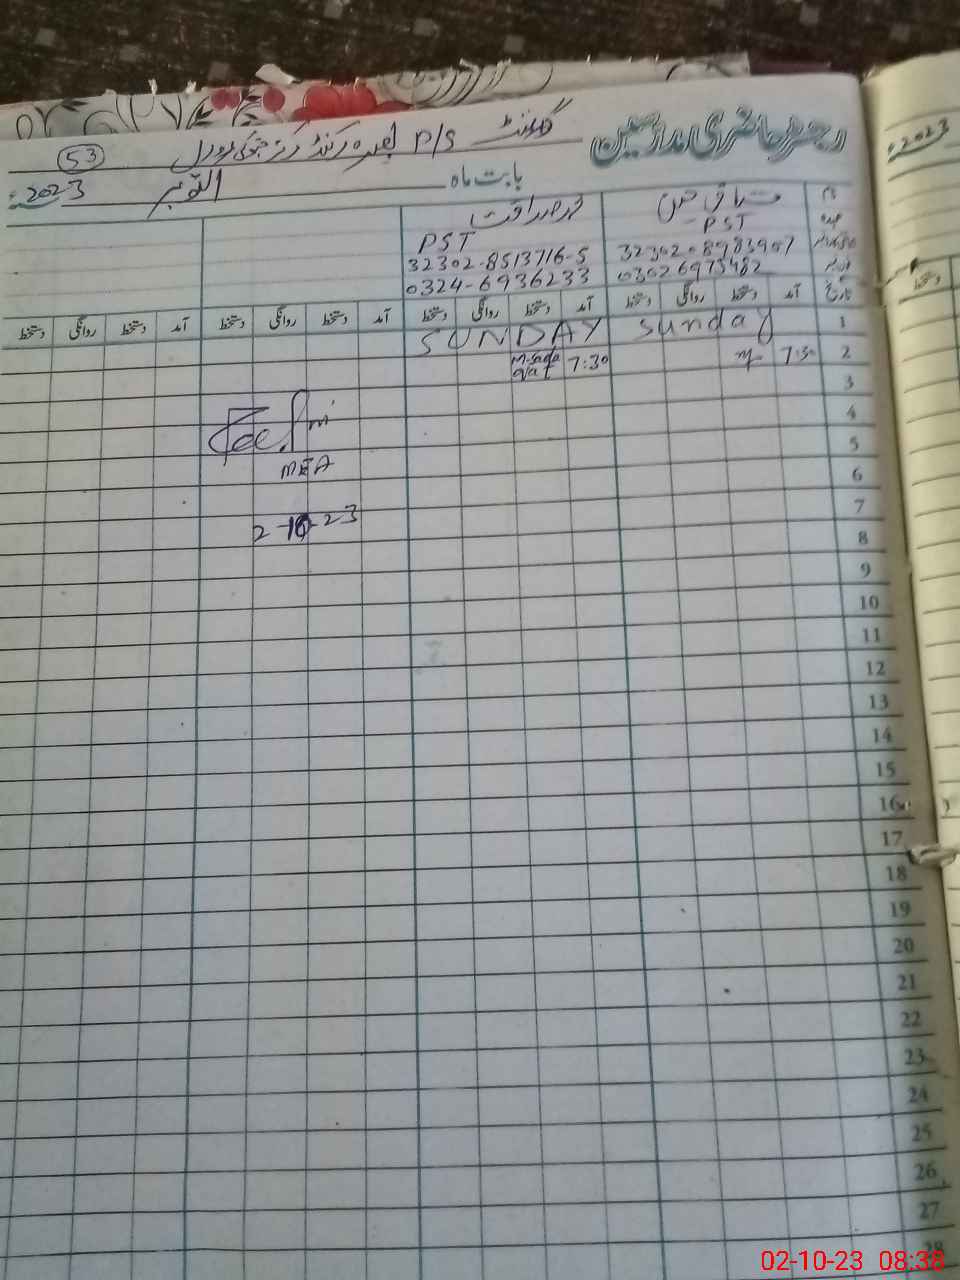 رجسٹر حاضری مدرسین
گورنمنٹ P/S
53
بابت ماہ اکتوبر 2023ء
2023ء
نام
PST
محمد صداقت
PST
عہدہ
32302-8513716-5
0324-6936233
03026973482
تاریخ آمد دستخط روانگی دستخط آمد دستخط روانگی دستخط آمد دستخط روانگی دستخط آمد دستخط روانگی دستخط
1 Sunday SUNDAY
2 7:30 7:30 M.Sada
qat
3
4
5
6
MEA
7
2-10-23
8
9
10
11
12
13
14
15
16
17
18
19
20
21
22
23
24
25
26
27
28
دستخط
02-10-23 08:38